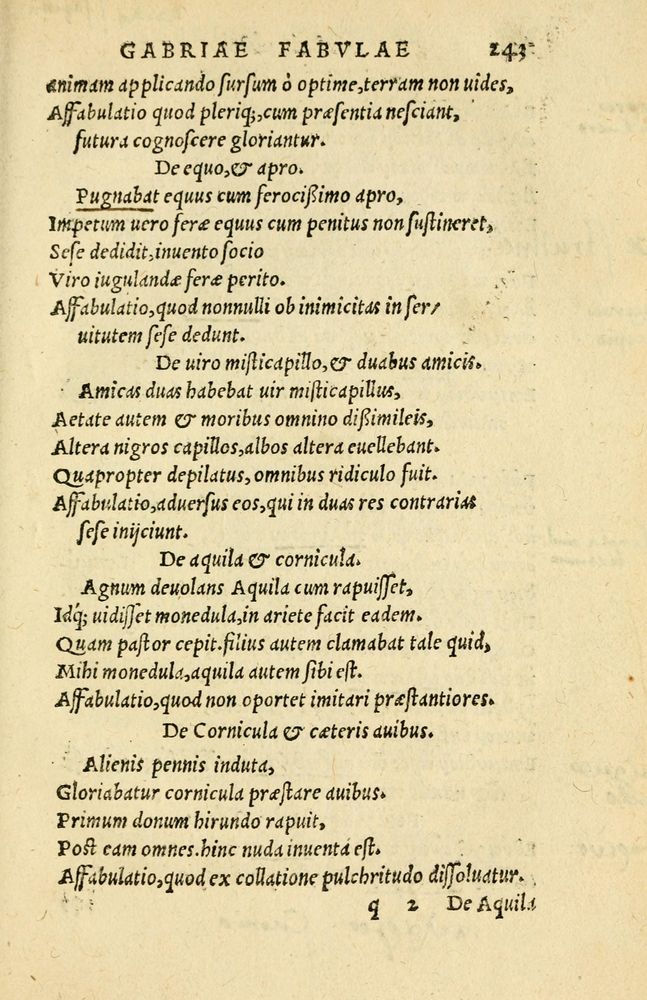 GABRIAE FABVLAE 243
animam applicando sursum ò optime, terram non uides,
Affabulatio quod pleriq;, cum præsentia nesciant,
futura cognoscere gloriantur.
De equo, & apro.
Pugnabat equus cum ferocißimo apro,
Impetum uero feræ equus cum penitus non sustineret,
Sese dedidit, inuento socio
Viro iugulandæ feræ perito.
Affabulatio, quod nonnulli ob inimicitas in ser/
uitutem sese dedunt.
De uiro misticapillo, & duabus amicis.
Amicas duas habebat uir misticapillus,
Aetate autem & moribus omnino dißimileis,
Altera nigros capillos, albos altera euellebant.
Quapropter depilatus, omnibus ridiculo fuit.
Affabulatio, aduersus eos, qui in duas res contrarias
sese inijciunt.
De aquila & cornicula.
Agnum deuolans Aquila cum rapuisset,
Idq́; uidisset monedula, in ariete facit eadem.
Quam pastor cepit. filius autem clamabat tale quid,
Mihi monedula, aquila autem sibi est.
Affabulatio, quod non oportet imitari præstantiores.
De Cornicula & cæteris auibus.
Alienis pennis induta,
Gloriabatur cornicula præstare auibus.
Primum donum hirundo rapuit,
Post eam omnes. hinc nuda inuenta est.
Affabulatio, quod ex collatione pulchritudo dissoluatur.
q 2 De Aquila